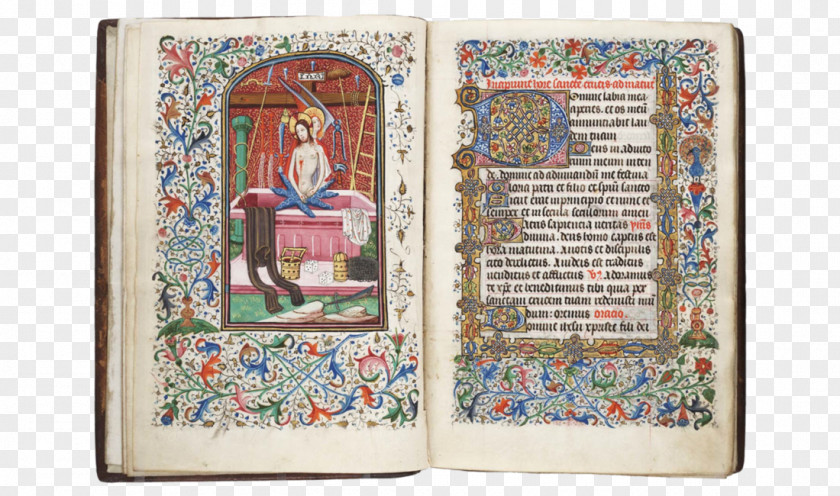 INRI
Incipiunt hore sancte crucis ad matut
Domine labia mea
aperies. et os meu
annunciabit lau
dem tuam
Deus in adiuto
rium meum inten
de. domine ad adiuvandu me festina
Gloria patri et filio et spui sancto
Sicut erat in principio et nunc et
semper et in secula seculorum amen
Patris sapientia veritas
divina. deus homo captus est
hora matutina. A notis et discipulis
cito derelictus. A iudeis est traditus
venditus et afflictus Adoramus
te xpe et benedicimus tibi quia per
sanctam crucem tuam redemisti mu
oremus oracio
Domine iesu xpriste fili dei